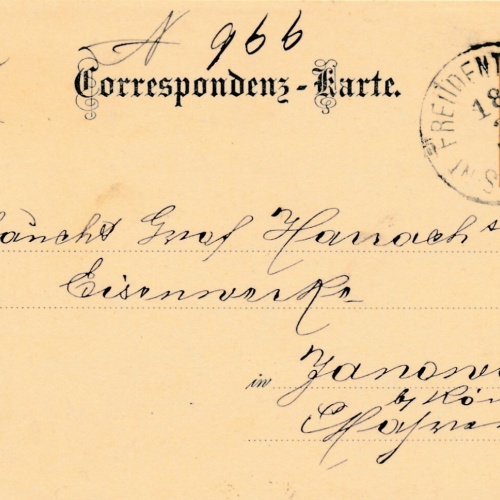 N 966
Correspondenz-Karte.
FREUDENT
18
INS
laucht Graf Harrach's
Eisenwerke
in Janow
b/ Kön
Mähre